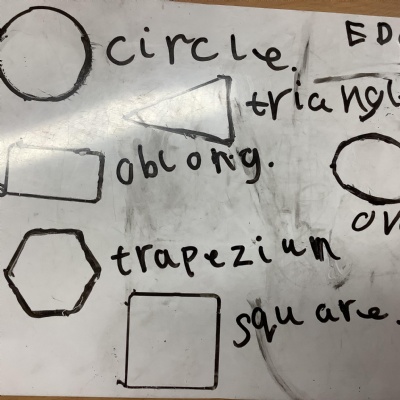 circle.
triangl
oblong.
trapezium
square.